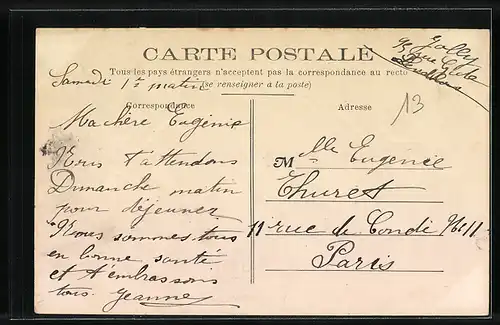 Jolly
CARTE POSTALE
Tous les pays étrangers n'acceptent pas la correspondance au recto
(se renseigner à la poste)
Samedi 1h matin
Correspondance
Adresse
13
Ma chère Eugénie
Nous t'attendons
Dimanche matin
pour déjeuner
Nous sommes tous
en bonne santé
et t'embrassons
tous. Jeanne
Mlle Eugenie
Thuret
11 rue de Condé No 11
Paris